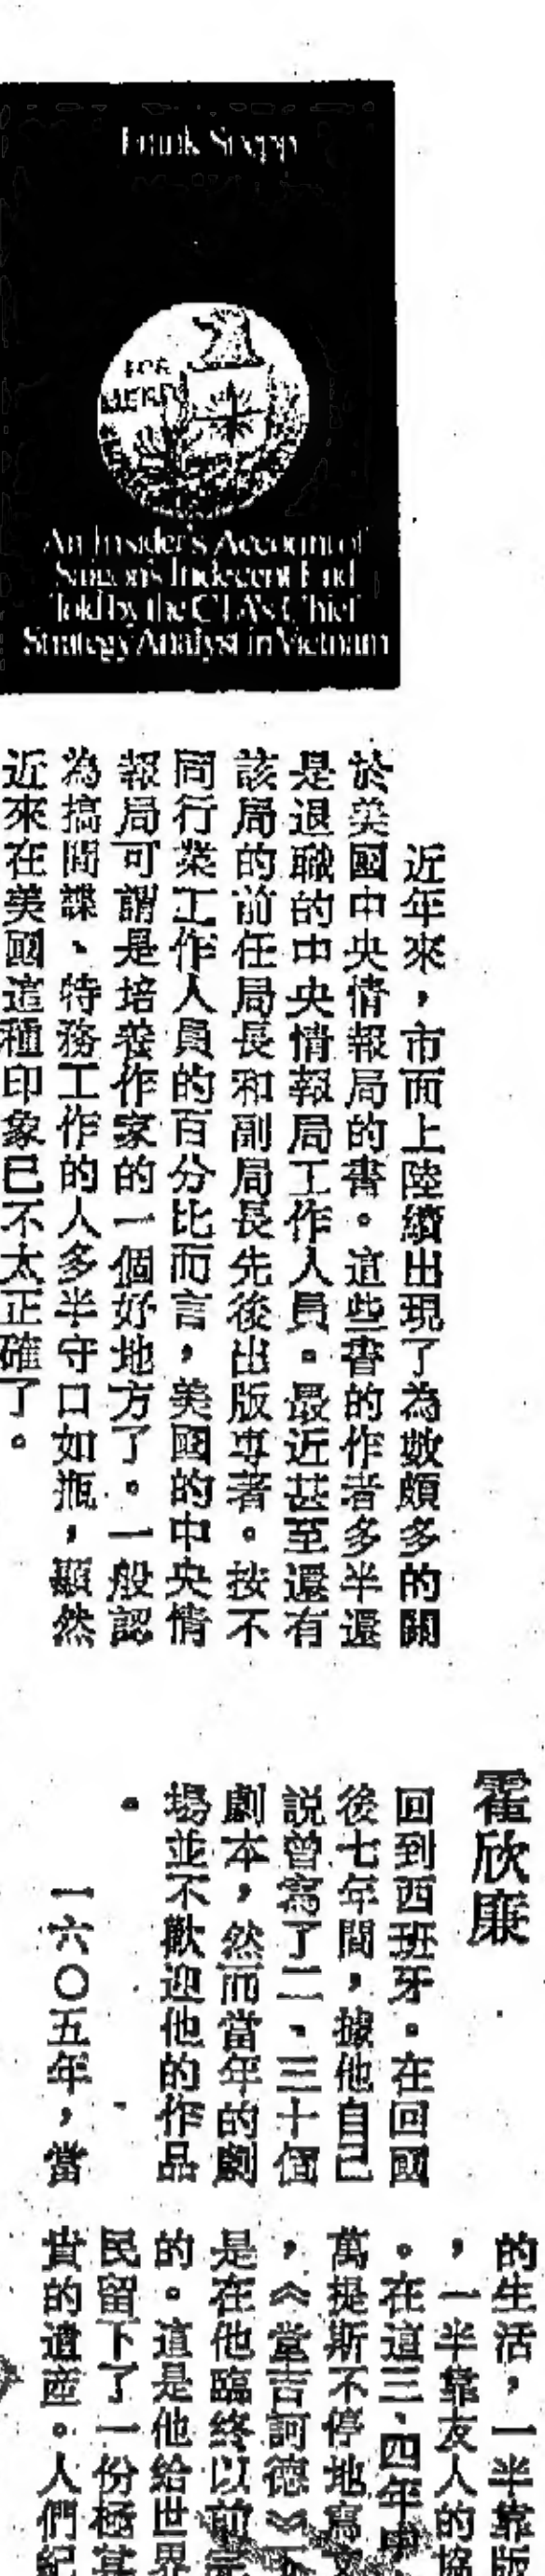 Frank Snepp
FOR
MERIT
An Insider's Account of
Saigon's Indecent End
Told by the CIA's Chief
Strategy Analyst in Vietnam
近年來，市面上陸續出現了為數頗多的關
於美國中央情報局的書。這些書的作者多半還
是退職的中央情報局工作人員。最近甚至還有
該局的前任局長和副局長先後出版專著。按不
同行業工作人員的百分比而言，美國的中央情
報局可謂是培養作家的一個好地方了。一般認
為搞間諜、特務工作的人多半守口如瓶，顯然
近來在美國這種印象已不太正確了。
霍欣廉
回到西班牙。在回國
後七年間，據他自己
説曾寫了二、三十個
劇本，然而當年的劇
場並不歡迎他的作品
。
一六〇五年，當
的生活，一半靠版
，一半靠友人的協
。在這三、四年中
萬提斯不停地寫
，《堂吉訶德》下
是在他臨終以前完
的。這是他給世界
民留下了一份極其
貴的遺產。人們紀